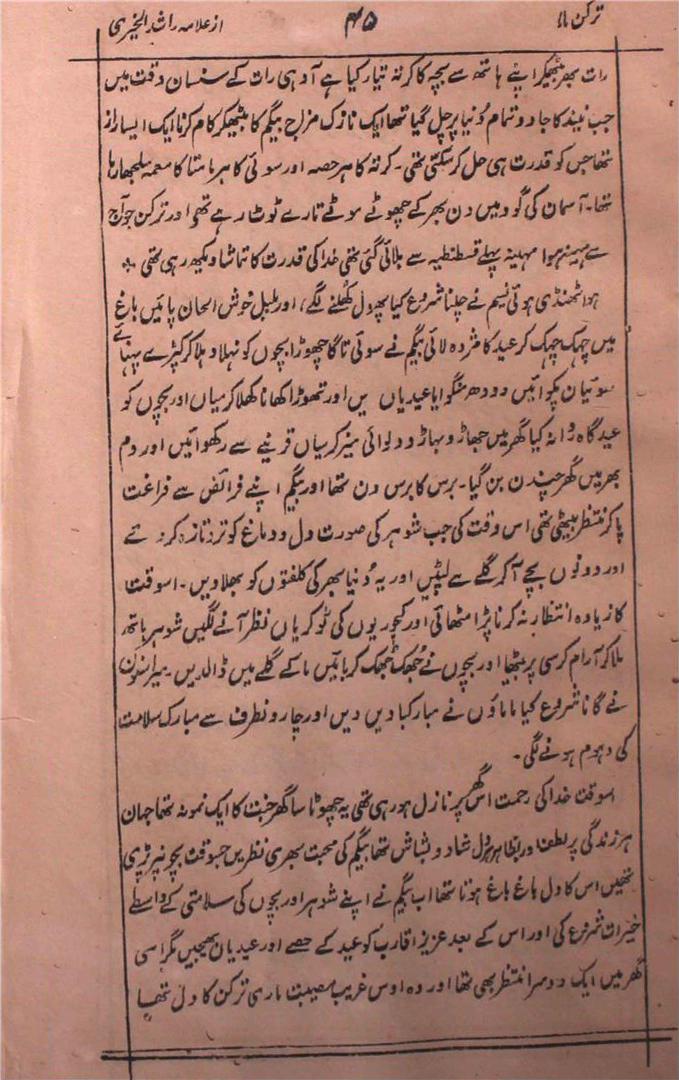 ترکن ماما ۴۵ از علامہ راشد الخیری
رات بھر بیٹھکر اپنے ہاتھ سے بچہ کا کرتہ تیار کیا ہے آدہی رات کے سنسان وقت میں
جب نیند کا جادو تمام دُنیا پر چل گیا تھا ایک نازک مزاج بیگم کا بیٹھیکر کام کرنا ایک ایسا راز
تھا جس کو قدرت ہی حل کر سکتی تھی۔ کرتہ کا ہر حصہ اور سوئی کا ہر مامتا کا معمہ سلجھا رہا
تھا۔ آسمان کی گود میں دن بھر کے چھوٹے موٹے تارے ٹوٹ رہے تھے اور ترکن جو آج
سے مہینہ ہوا مہینہ پہلے قسطنطیہ سے بلائی گئی تھی خدا کی قدرت کا تماشا دیکھ رہی تھی ٭
ہوا ٹھنڈی ہوئی نسیم نے چلنا شروع کیا پھول کھلنے لگے، اور بلبل خوش الحان پائیں باغ
میں چہک چہک کر عید کا مژدہ لائی بیگم نے سوئی تاگا چھوڑا بچوں کو نہلا دہلا کر کپڑے پہنائے
سوئیان پکوائیں دودھ منگوایا عیدیاں دیں اور تھوڑا کھانا کھلا کر میاں اور بچوں کو
عیدگاہ روانہ کیا گھر میں جھاڑو بہاڑو دلوائی میز کرسیاں قرینے سے رکھوائیں اور دم
بھر میں گھر چندن بن گیا۔ برس کا برس دن تھا اور بیگم اپنے فرائض سے فراغت
پا کر منتظر بیٹھی تھی اس وقت کی جب شوہر کی صورت دل و دماغ کو تر و تازہ کر دے
اور دونوں بچے آ کر گلے سے لپٹیں اور یہ دُنیا بھر کی کلفتوں کو بھلا دیں۔ اسوقت
کا زیادہ انتظار نہ کرنا پڑا مٹھائی اور کچوریوں کی ٹوکریاں نظر آنے لگیں شوہر ہاتھ
ملا کر آرام کرسی پر بیٹھا اور بچوں نے جُھک جُھک کر بانہیں ما کے گلے میں ڈالدیں میراسنوں
نے گانا شروع کیا ماماؤں نے مبارکبادیں دیں اور چارونطرف سے مبارک سلامت
کی دہوم ہونے لگی۔
اسوقت خدا کی رحمت اس گھر پر نازل ہو رہی تھی یہ چھوٹا سا گھر جنت کا ایک نمونہ تھا جہان
ہر زندگی پر لطف اور بظاہر ہر دل شاد و بشاش تھا بیگم کی محبت بھری نظریں جسوقت بچونپر پڑتی
تھیں اس کا دل باغ باغ ہوتا تھا اب بیگم نے اپنے شوہر اور بچوں کی سلامتی کے واسطے
خیرات شروع کی اور اس کے بعد عزیز اقارب کو عید کے حصے اور عیدیان بھیجیں مگر اسی
گھر میں ایک دوسرا منتظر بھی تھا اور وہ اوس غریب مصیبت ماری ترکن کا دل تھا